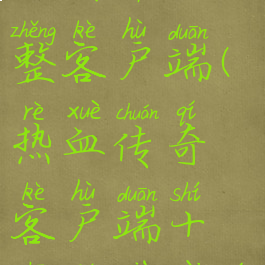 zhěng kè hù duān
整客户端(
rè xuè chuán qí
热血传奇
kè hù duān shí
客户端十